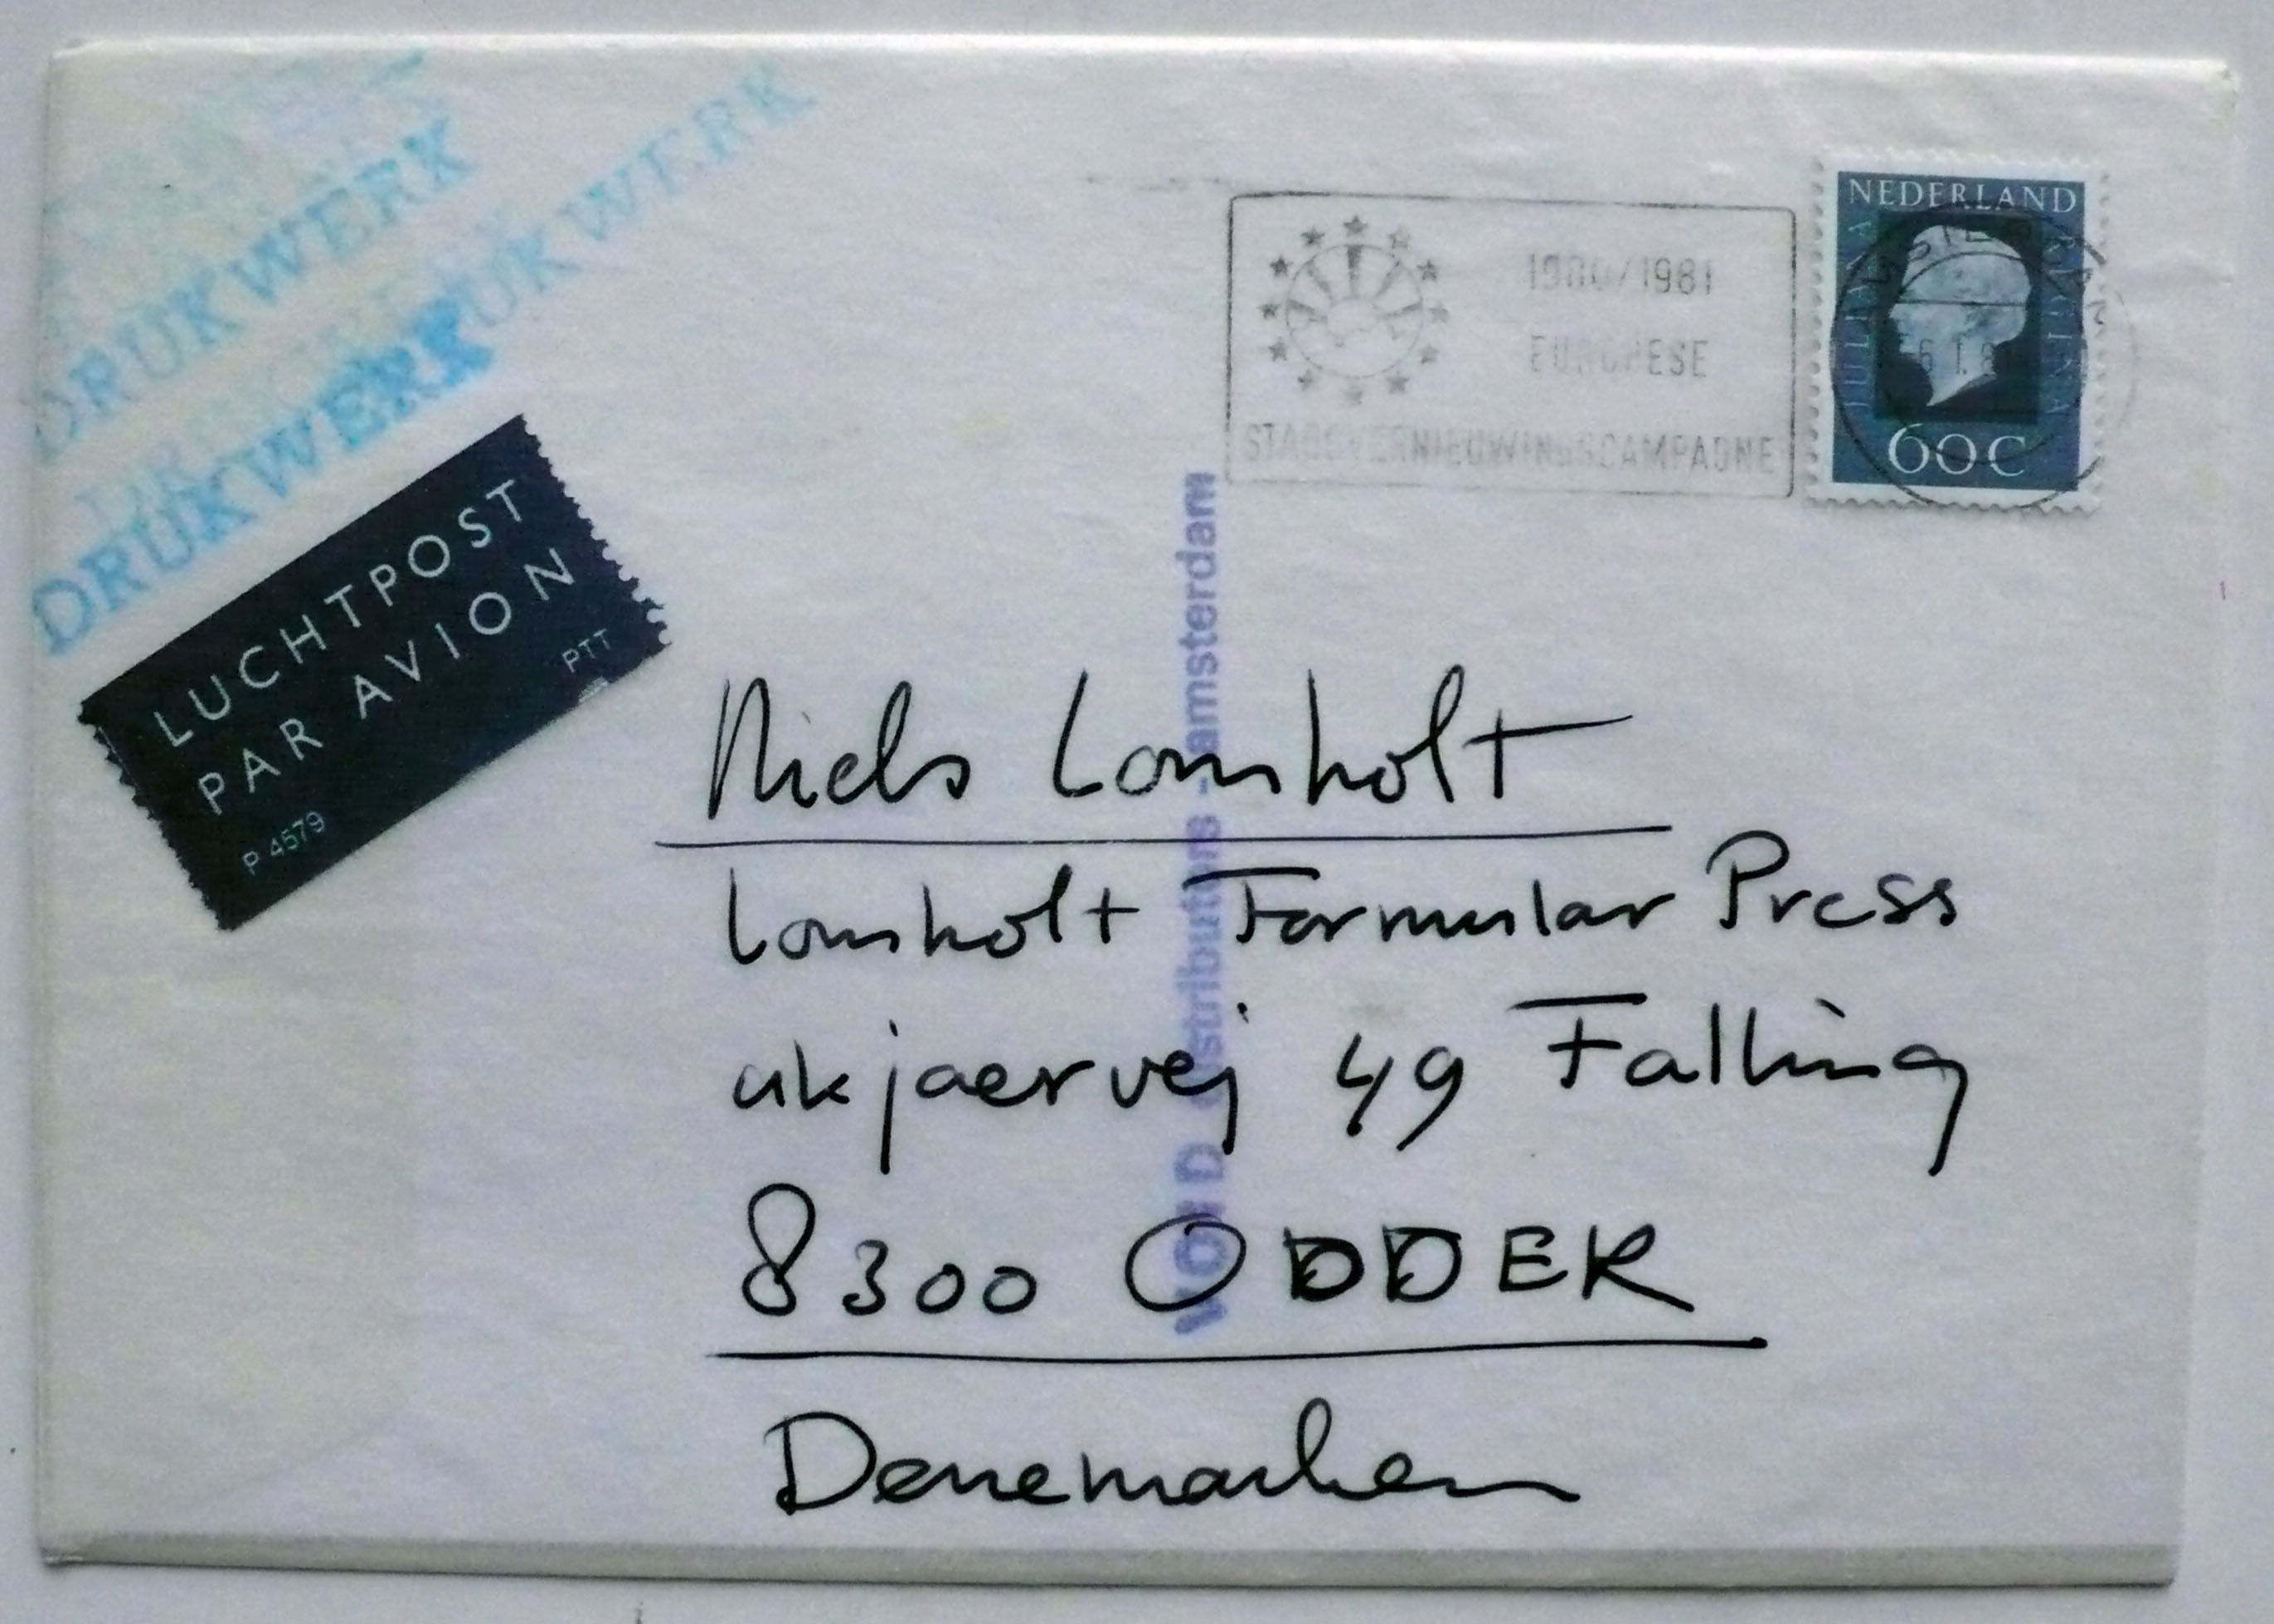 DRUKWERK
DRUKWERK
DRUKWERK
LUCHTPOST
PAR AVION
PTT
P 4579
1980/1981
EUROPESE
STADSVERNIEUWINGSCAMPAGNE
NEDERLAND
JULIANA
REGINA
60c
AMSTERDAM
VOID distributors - amsterdam
Niels Lomholt
Lomholt Formular Press
ukjaervej 49 Falling
8300 ODDER
Denemarken